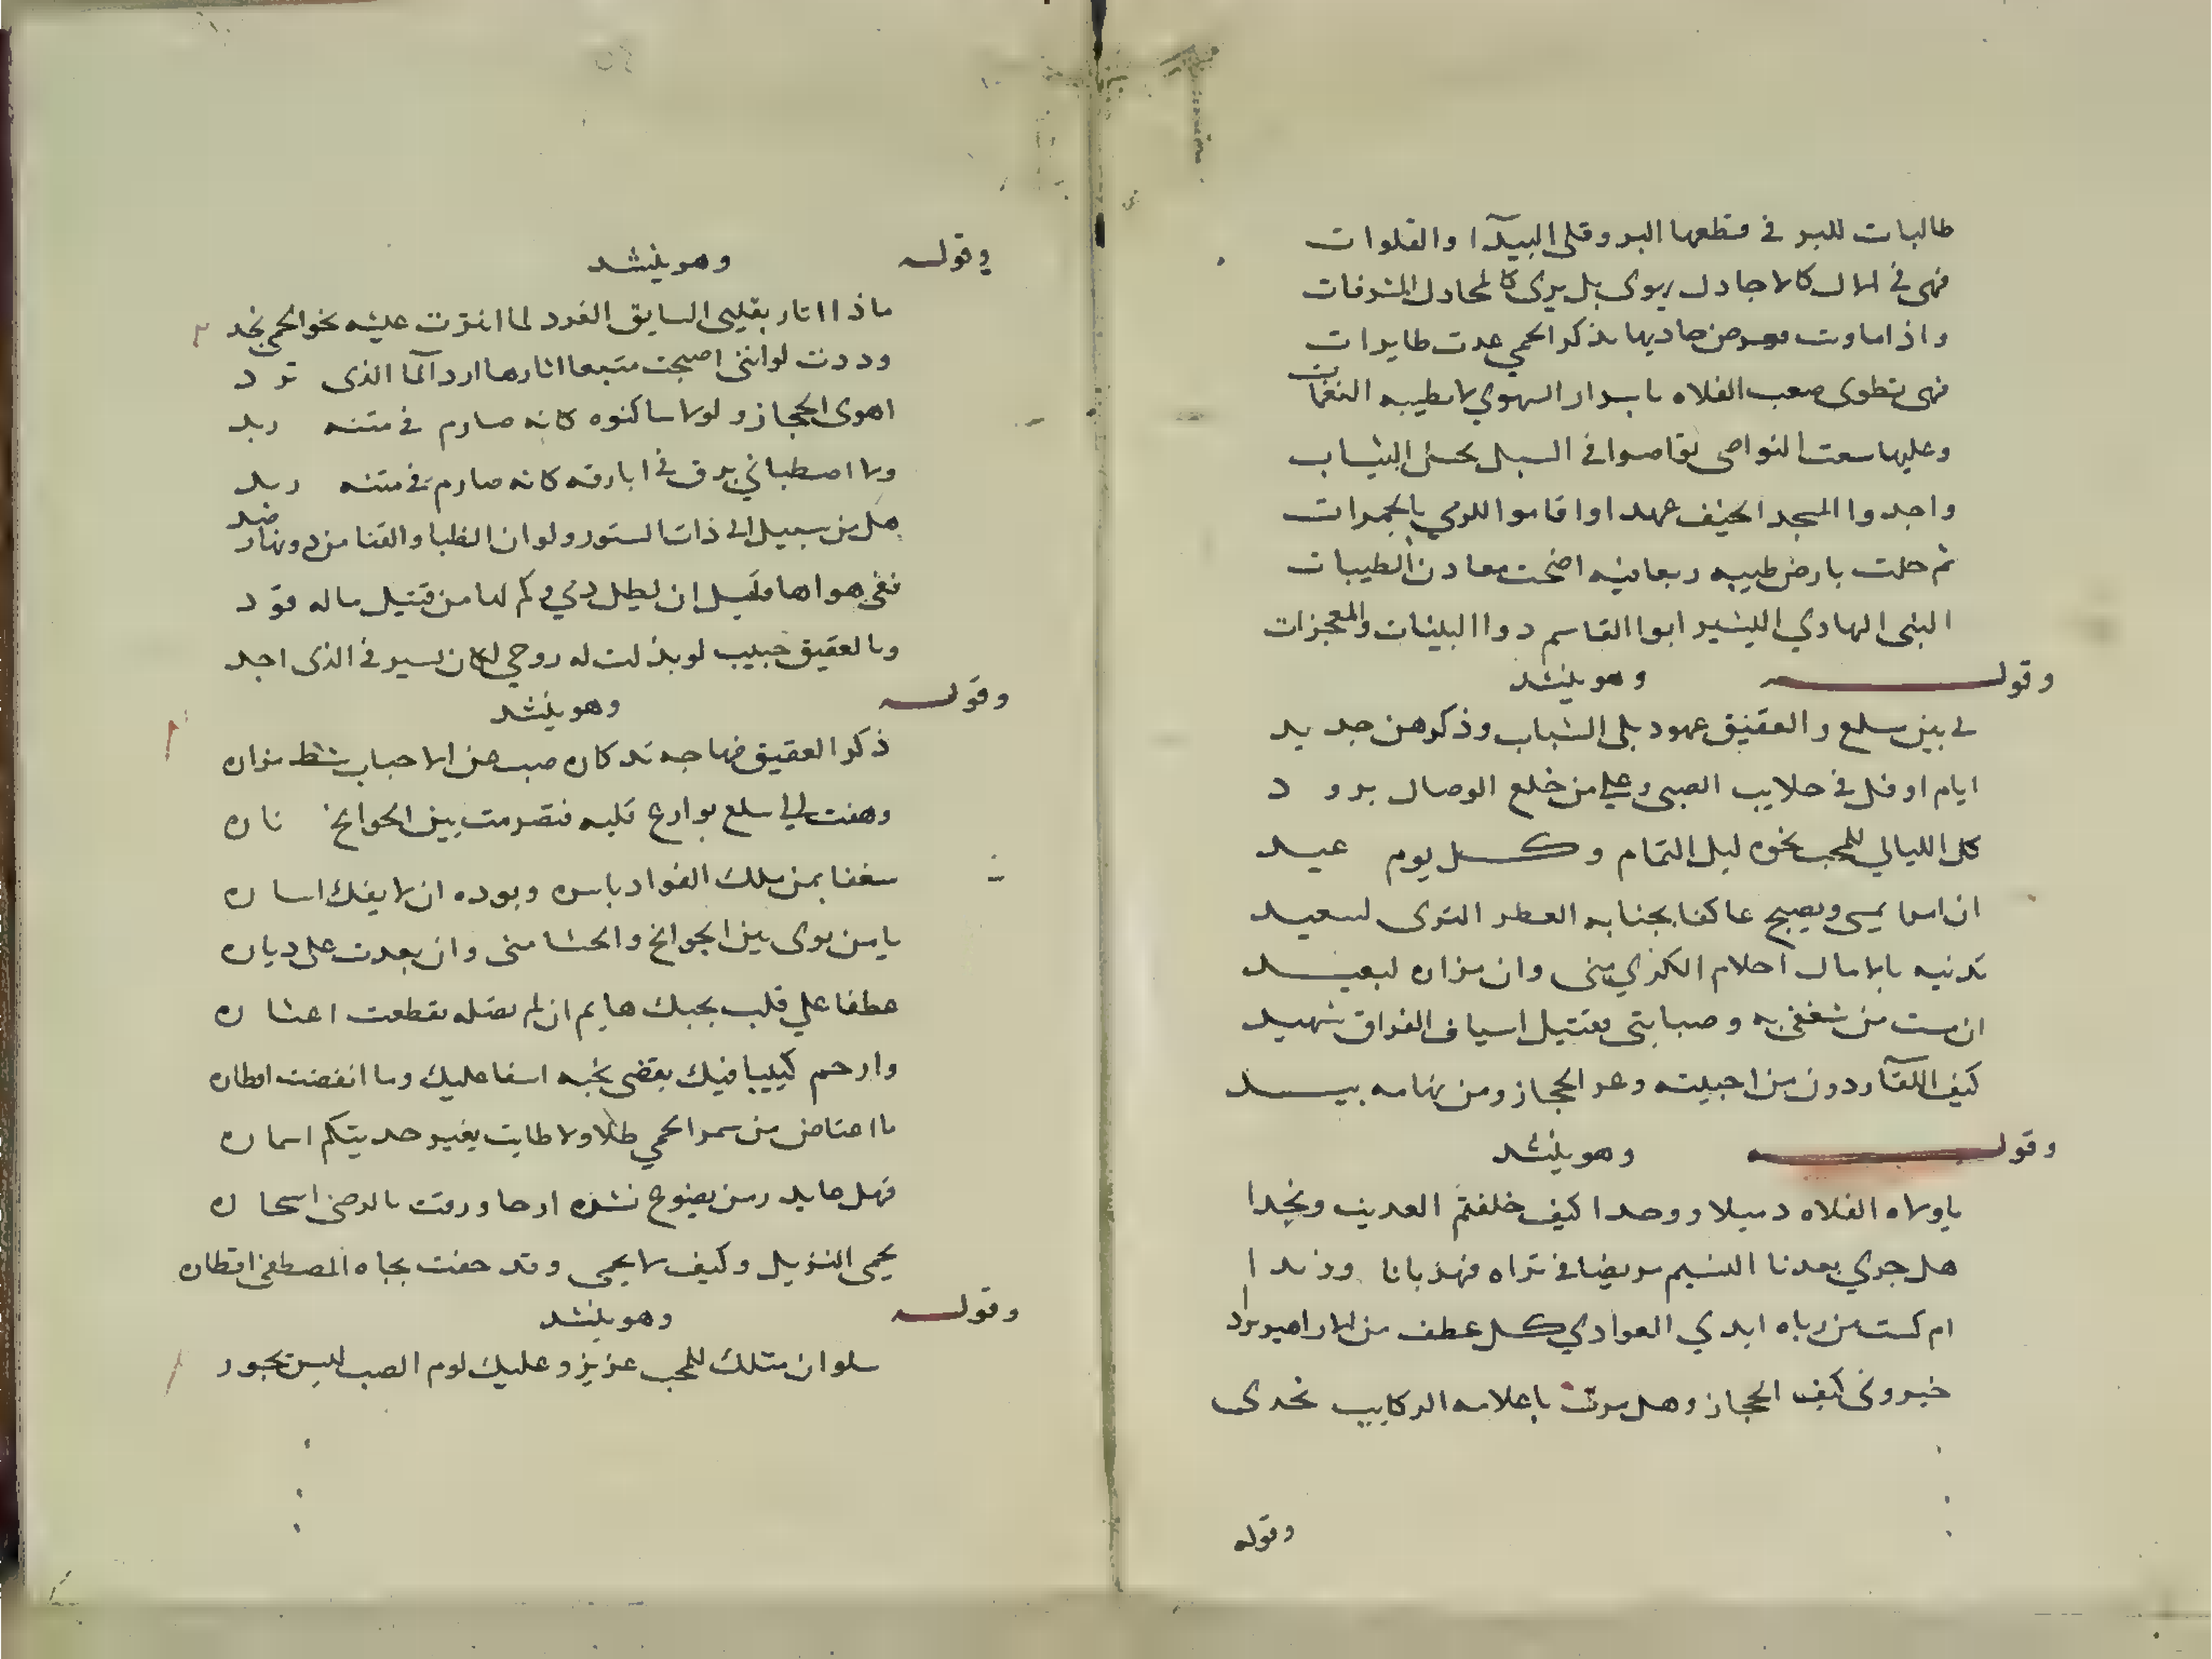 طالبات للبر في قطعها البر وقلى البيدآ والفلوات
فهى في الال كالاجادل يهوى بل يرى كالمجادل المشرفات
واذا ماوت من حاديها بذكر الحمي عدت طايرات
فهى تطوى صعب الفلاه بابدار السهوي لا بطيبه النغمات
وعليها سعت النواصى تواصوا في السبل بحسن الثياب
واجدوا المسجد الخيف عهدا واقاموا للرمي بالجمرات
ثم حلت بارض طيبه ربعا فيه اضحت معادن الطيبات
النبى الهادي البشير ابوا القاسم ذوا البينات والمعجزات
وقوله وهو ينشد
لي بين سلع والعقيق عهود بلى الشباب وذكرهن جديد
ايام ارفل في جلابيب الصبى وعلي من خلع الوصال برود
كل الليالي للمحب نحوه ليل التمام وكل يوم عيد
ان امرا يمسي ويصبح عاكفا بجنابه العطر الثرى لسعيد
تدنيه بالامال احلام الكرى منى وان مزاره لبعيد
ان مت من شغفي به وصبابتى فقتيل اسياف الفراق شهيد
كيف اللقآ ودون من احببته وعر الحجاز ومن تهامه بيد
وقوله وهو ينشد
ياولاه الفلاه دميلا ووحدا كيف خلفتم العذيب ونجدا
هل جري بعدنا النسيم مريضا في ثراه فهز بانا ورندا
ام كست من رباه ايدي الغوادي كل عطف من الازاهير بردا
خبروني كيف الحجاز وهل مرت باعلامه الركايب تحدى
وقوله
وقوله وهو ينشد
ماذا اثار بقلبى السايق الغرد لما انثرت عيسه نحو الحمى نجد
وددت لو اننى اصبحت متبعا اثارها ارد المآ الذى ترد
اهوى الحجاز ولولا ساكنوه كانه صارم في متنه ربد
ولا اصطباني برق في ابارقه كانه صارم في متنه ربد
هل من سبيل الى ذات الستور ولو ان الظبا والقنا من دونها رصد
ففى هواها قليل ان يطل دمي وكم لها من قتيل ماله قود
وبالعقيق حبيب لو بذلت له روحي لكان يسير في الذى اجد
وقوله وهو ينشد
ذكر العقيق فهاجه تذكاره صب عن الاحباب شط مزاره
وهفت الي سلع نوازع قلبه فتضرمت بين الجوانح ناره
شغفا بمن ملك الفواد باسره وبوده ان لا يفك اساره
يا من ثوى بين الجوانح والحشا منى وان بعدت على دياره
عطفا علي قلب بحبك هايم ان لم تصله تقطعت اعشاره
وارحم كييبا فيك يقضى نحبه اسفا عليك وما انقضت اوطاره
ما اعتاض من سمر الحمي ظلا ولا طابت بغير حديثكم اسماره
فهل عايد زمن يضوع نشره ارجا ورقت بالرضى اسحاره
يحمى النزيل وكيف لا يحمى وقد حفت بجاه المصطفى اقطاره
وقوله وهو ينشد
سلوان مثلك للمحب عزيز وعليك لوم الصب ليس يجوز